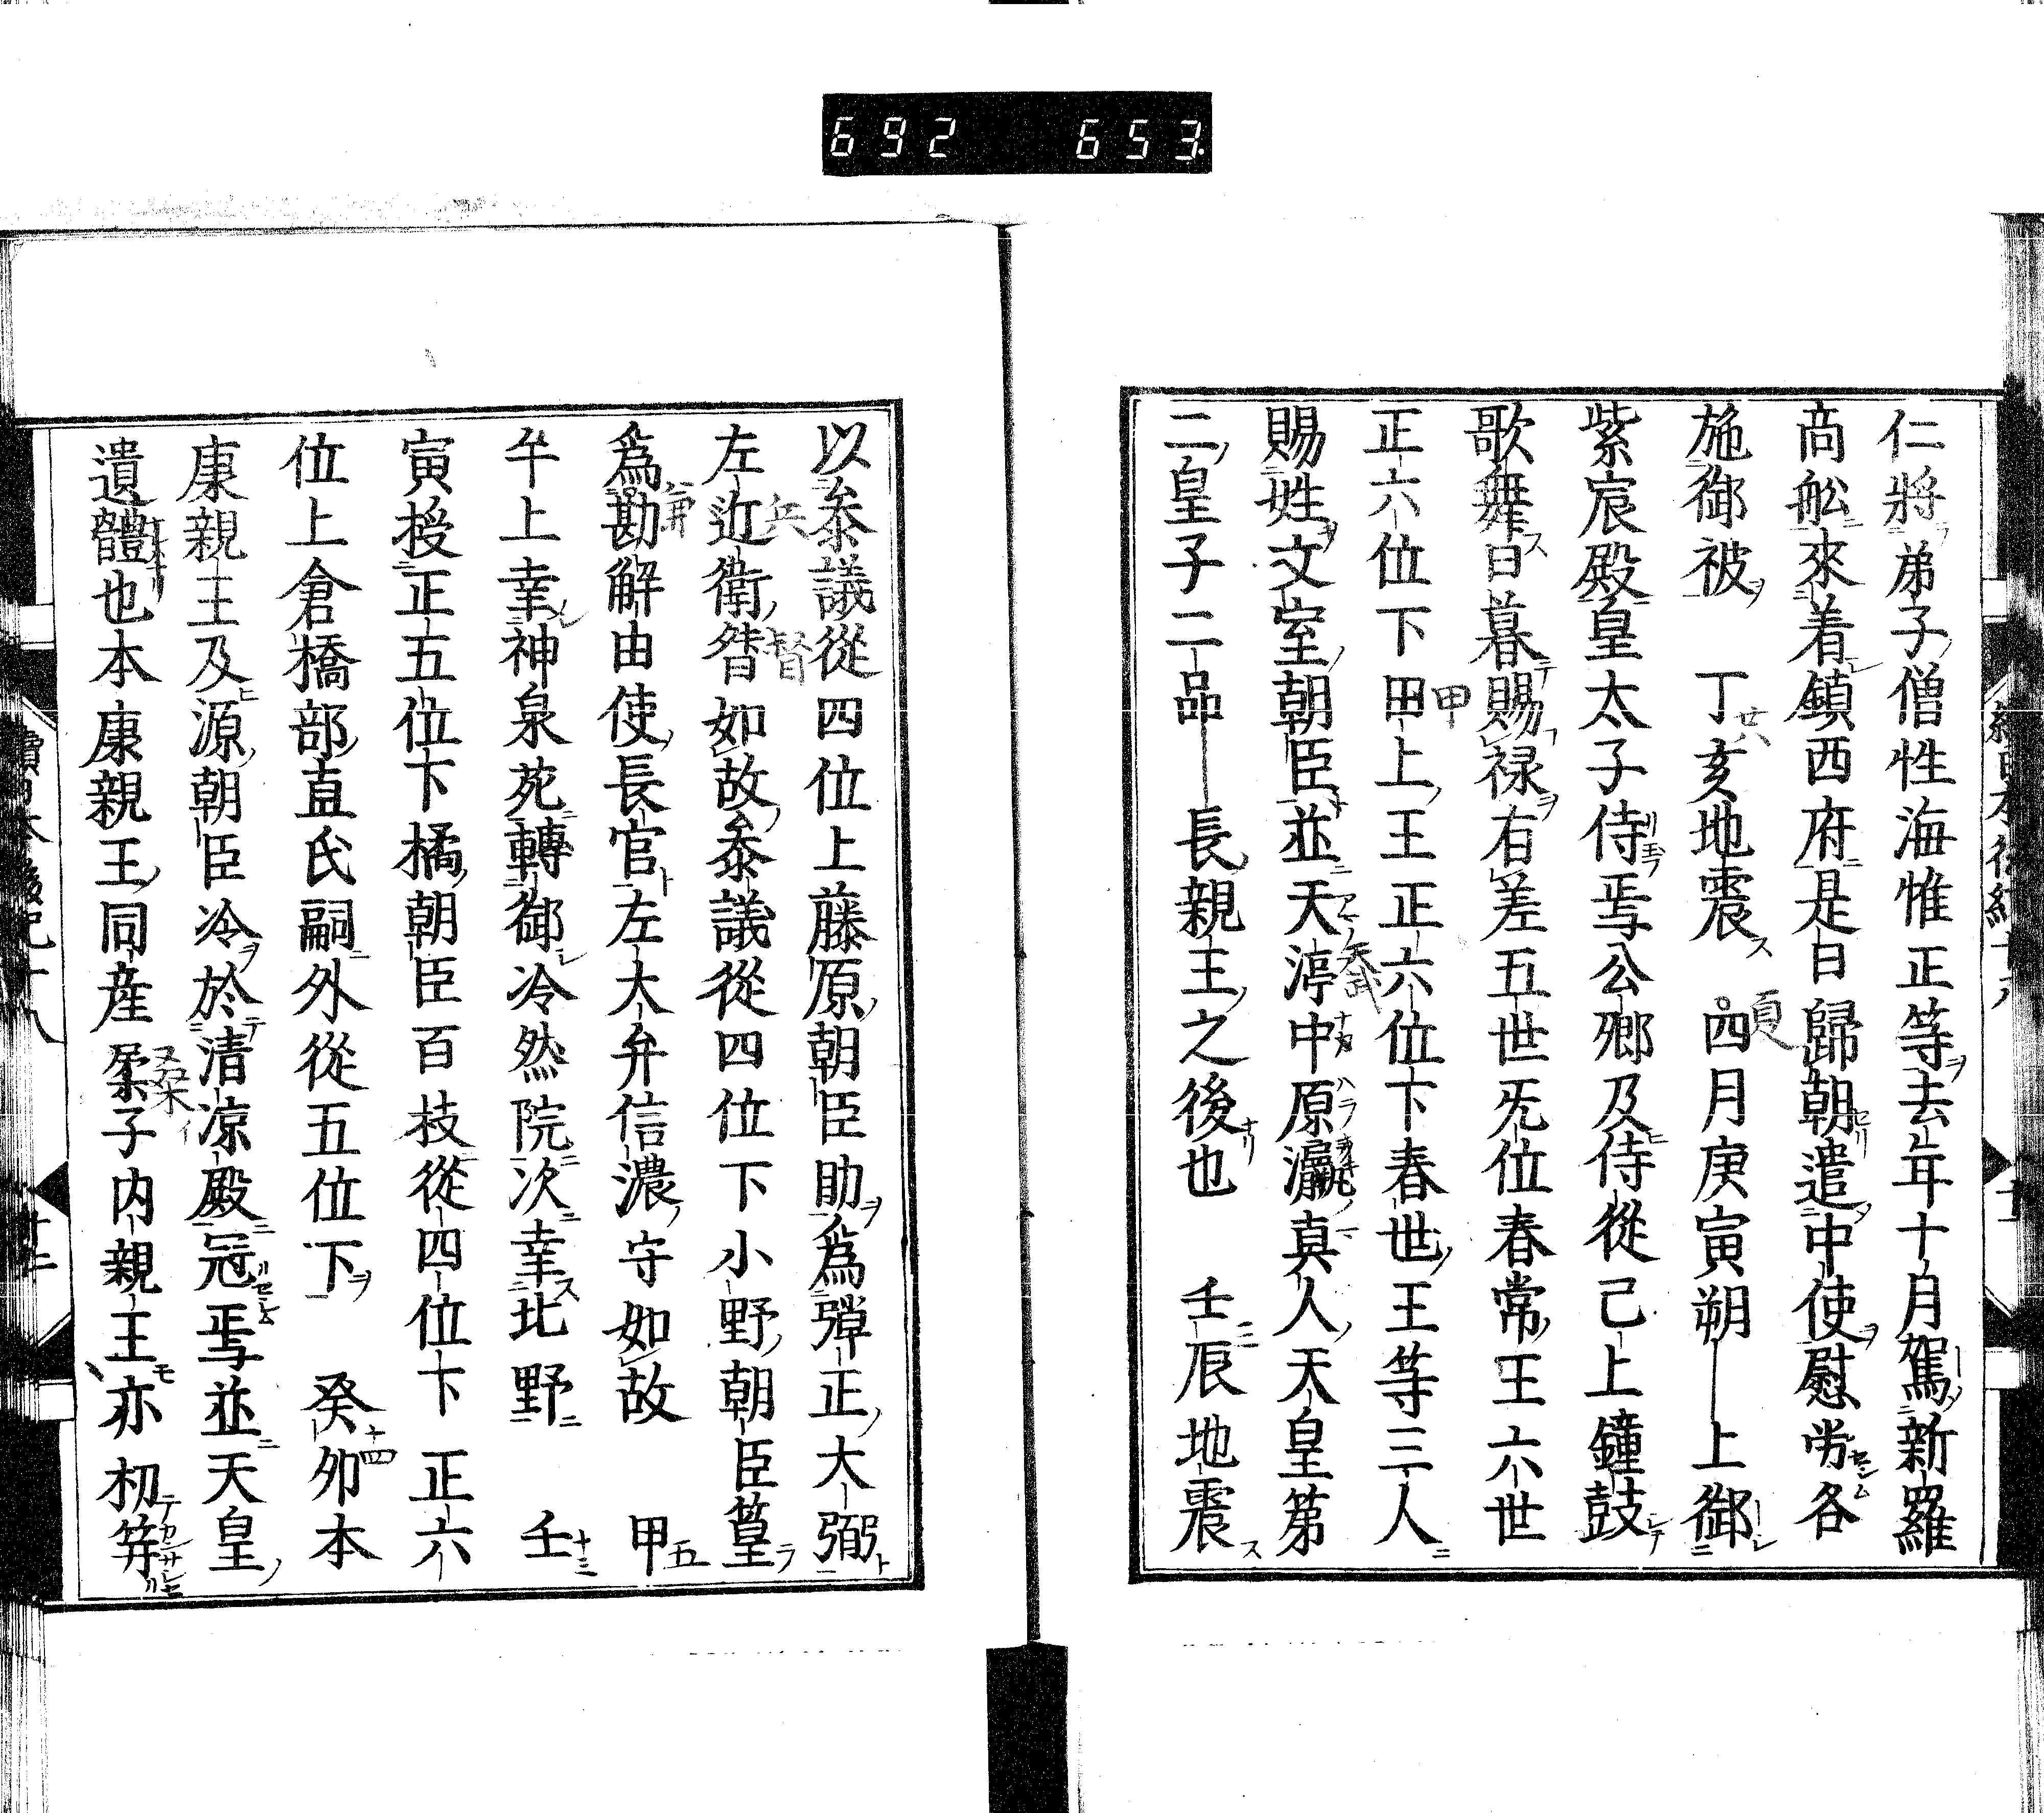 692 653
仁將弟子僧性海惟正等去年十月駕新羅
商舩來着鎮西府是日歸朝遣中使慰労各
施御被　丁亥地震　四月庚寅朔　上御
紫宸殿皇太子侍焉公卿及侍從已上鐘鼓
歌舞日暮賜禄有差五世旡位春常王六世
正六位下田上王正六位下春世王等三人
賜姓文室朝臣並天渟中原瀛真人天皇第
二皇子二品　長親王之後也　壬辰地震
以叅議從四位上藤原朝臣助為彈正大弼
左近衛督如故叅議從四位下小野朝臣篁
為勘解由使長官左大弁信濃守如故　甲
午上幸神泉苑轉御冷然院次幸北野　壬
寅授正五位下橘朝臣百枝從四位下正六
位上倉橋部直氏嗣外從五位下　癸夘本
康親王及源朝臣冷於清凉殿冠焉並天皇
遺體也本康親王同産柔子内親王亦初笄